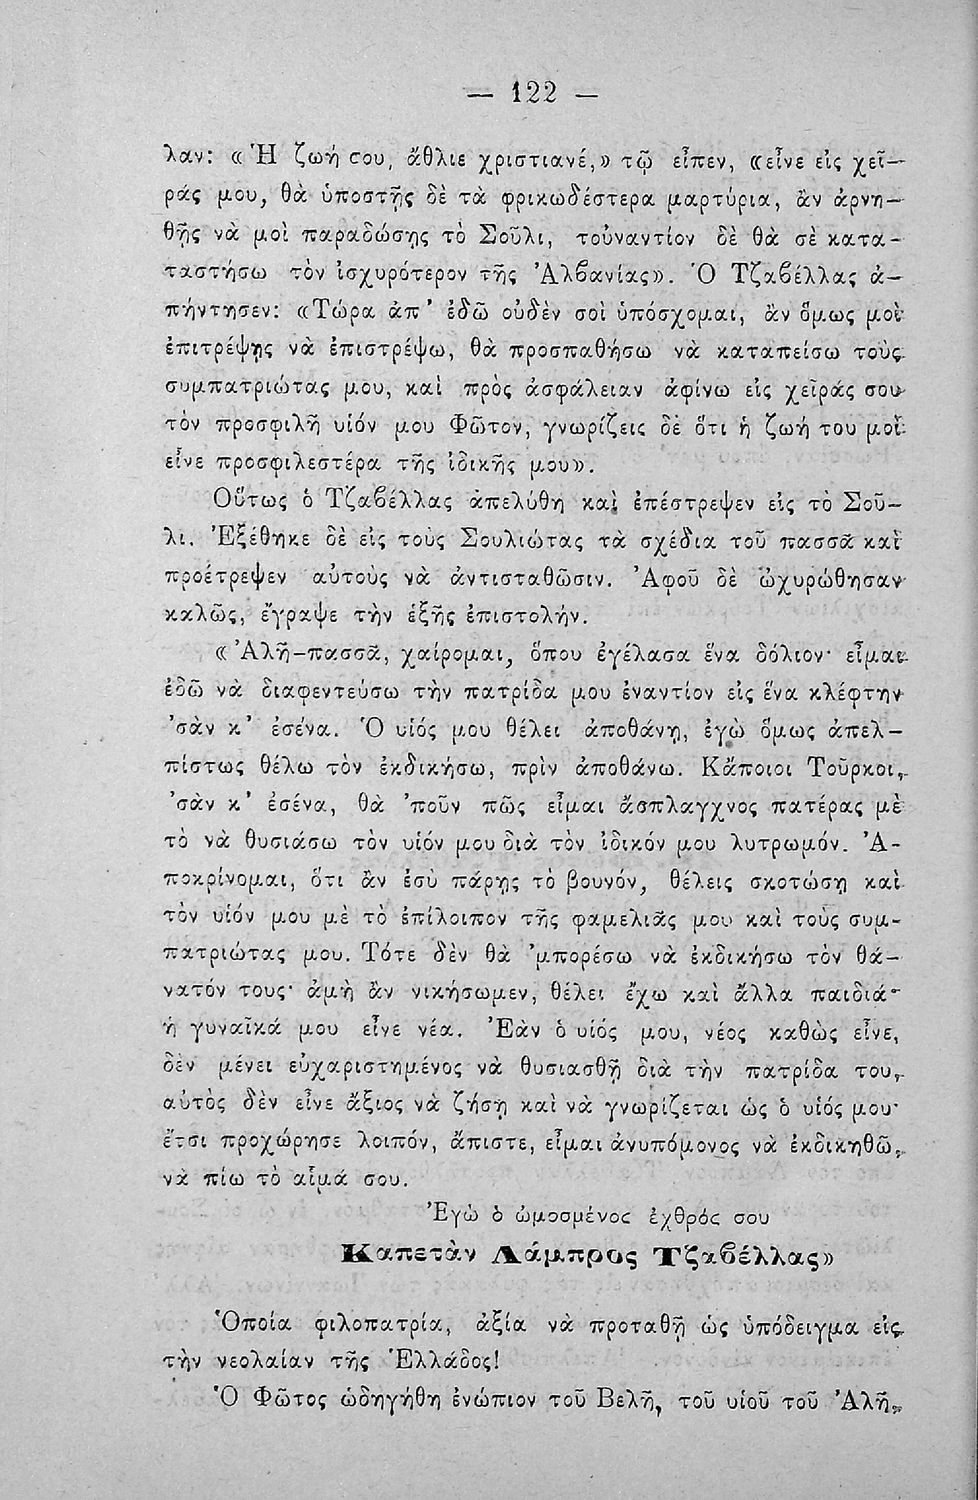 — 122 —
λαν: «Ἡ ζωή σου, ἄθλιε χριστιανέ,» τῷ εἶπεν, «εἶνε εἰς χεῖ—
ράς μου, θὰ ὑποστῇς δὲ τὰ φρικωδέστερα μαρτύρια, ἂν ἀρνη—
θῇς νὰ μοὶ παραδώσῃς τὸ Σοῦλι, τοὐναντίον δὲ θὰ σὲ κατα-
ταστήσω τὸν ἰσχυρότερον τῆς Ἀλβανίας». Ὁ Τζαβέλλας ἀ—
πήντησεν: «Τώρα ἀπ’ ἐδῶ οὐδὲν σοὶ ὑπόσχομαι, ἂν ὅμως μοὶ
ἐπιτρέψῃς νὰ ἐπιστρέψω, θὰ προσπαθήσω νὰ καταπείσω τοὺς
συμπατριώτας μου, καὶ πρὸς ἀσφάλειαν ἀφίνω εἰς χεῖράς σου
τὸν προσφιλῆ υἱόν μου Φῶτον, γνωρίζεις δὲ ὅτι ἡ ζωή του μοὶ
εἶνε προσφιλεστέρα τῆς ἰδικῆς μου».
Οὕτως ὁ Τζαβέλλας ἀπελύθη καὶ ἐπέστρεψεν εἰς τὸ Σοῦ—
λι. Ἐξέθηκε δὲ εἰς τοὺς Σουλιώτας τὰ σχέδια τοῦ πασσᾶ καὶ
προέτρεψεν αὐτοὺς νὰ ἀντισταθῶσιν. Ἀφοῦ δὲ ὠχυρώθησαν
καλῶς, ἔγραψε τὴν ἑξῆς ἐπιστολήν.
«Ἀλῆ–πασσᾶ, χαίρομαι, ὅπου ἐγέλασα ἕνα δόλιον· εἶμαι
ἐδῶ νὰ διαφεντεύσω τὴν πατρίδα μου ἐναντίον εἰς ἕνα κλέφτην
’σὰν κ’ ἐσένα. Ὁ υἱός μου θέλει ἀποθάνῃ, ἐγὼ ὅμως ἀπελ—
πίστως θέλω τὸν ἐκδικήσω, πρὶν ἀποθάνω. Κἄποιοι Τοῦρκοι,
’σὰν κ’ ἐσένα, θὰ ’ποῦν πῶς εἶμαι ἄσπλαγχνος πατέρας μὲ
τὸ νὰ θυσιάσω τὸν υἱόν μου διὰ τὸν ἰδικόν μου λυτρωμόν. Ἀ-
ποκρίνομαι, ὅτι ἂν ἐσὺ πάρῃς τὸ βουνόν, θέλεις σκοτώσῃ καὶ
τὸν υἱόν μου μὲ τὸ ἐπίλοιπον τῆς φαμελιᾶς μου καὶ τοὺς συμ-
πατριώτας μου. Τότε δὲν θὰ ’μπορέσω νὰ ἐκδικήσω τὸν θά—
νατόν τους· ἀμὴ ἂν νικήσωμεν, θέλει ἔχω καὶ ἄλλα παιδιά·
ἡ γυναῖκά μου εἶνε νέα. Ἐὰν ὁ υἱός μου, νέος καθὼς εἶνε,
δὲν μένει εὐχαριστημένος νὰ θυσιασθῇ διὰ τὴν πατρίδα του,
αὐτὸς δὲν εἶνε ἄξιος νὰ ζήσῃ καὶ νὰ γνωρίζεται ὡς ὁ υἱός μου·
ἔτσι προχώρησε λοιπόν, ἄπιστε, εἶμαι ἀνυπόμονος νὰ ἐκδικηθῶ,
νὰ πίω τὸ αἷμά σου.
Ἐγὼ ὁ ὡμοσμένος ἐχθρός σου
Καπετὰν Λάμπρος Τζαβέλλας»
Ὁποία φιλοπατρία, ἀξία νὰ προταθῇ ὡς ὑπόδειγμα εἰς
τὴν νεολαίαν τῆς Ἑλλάδος!
Ὁ Φῶτος ὡδηγήθη ἐνώπιον τοῦ Βελῆ, τοῦ υἱοῦ τοῦ Ἀλῆ,